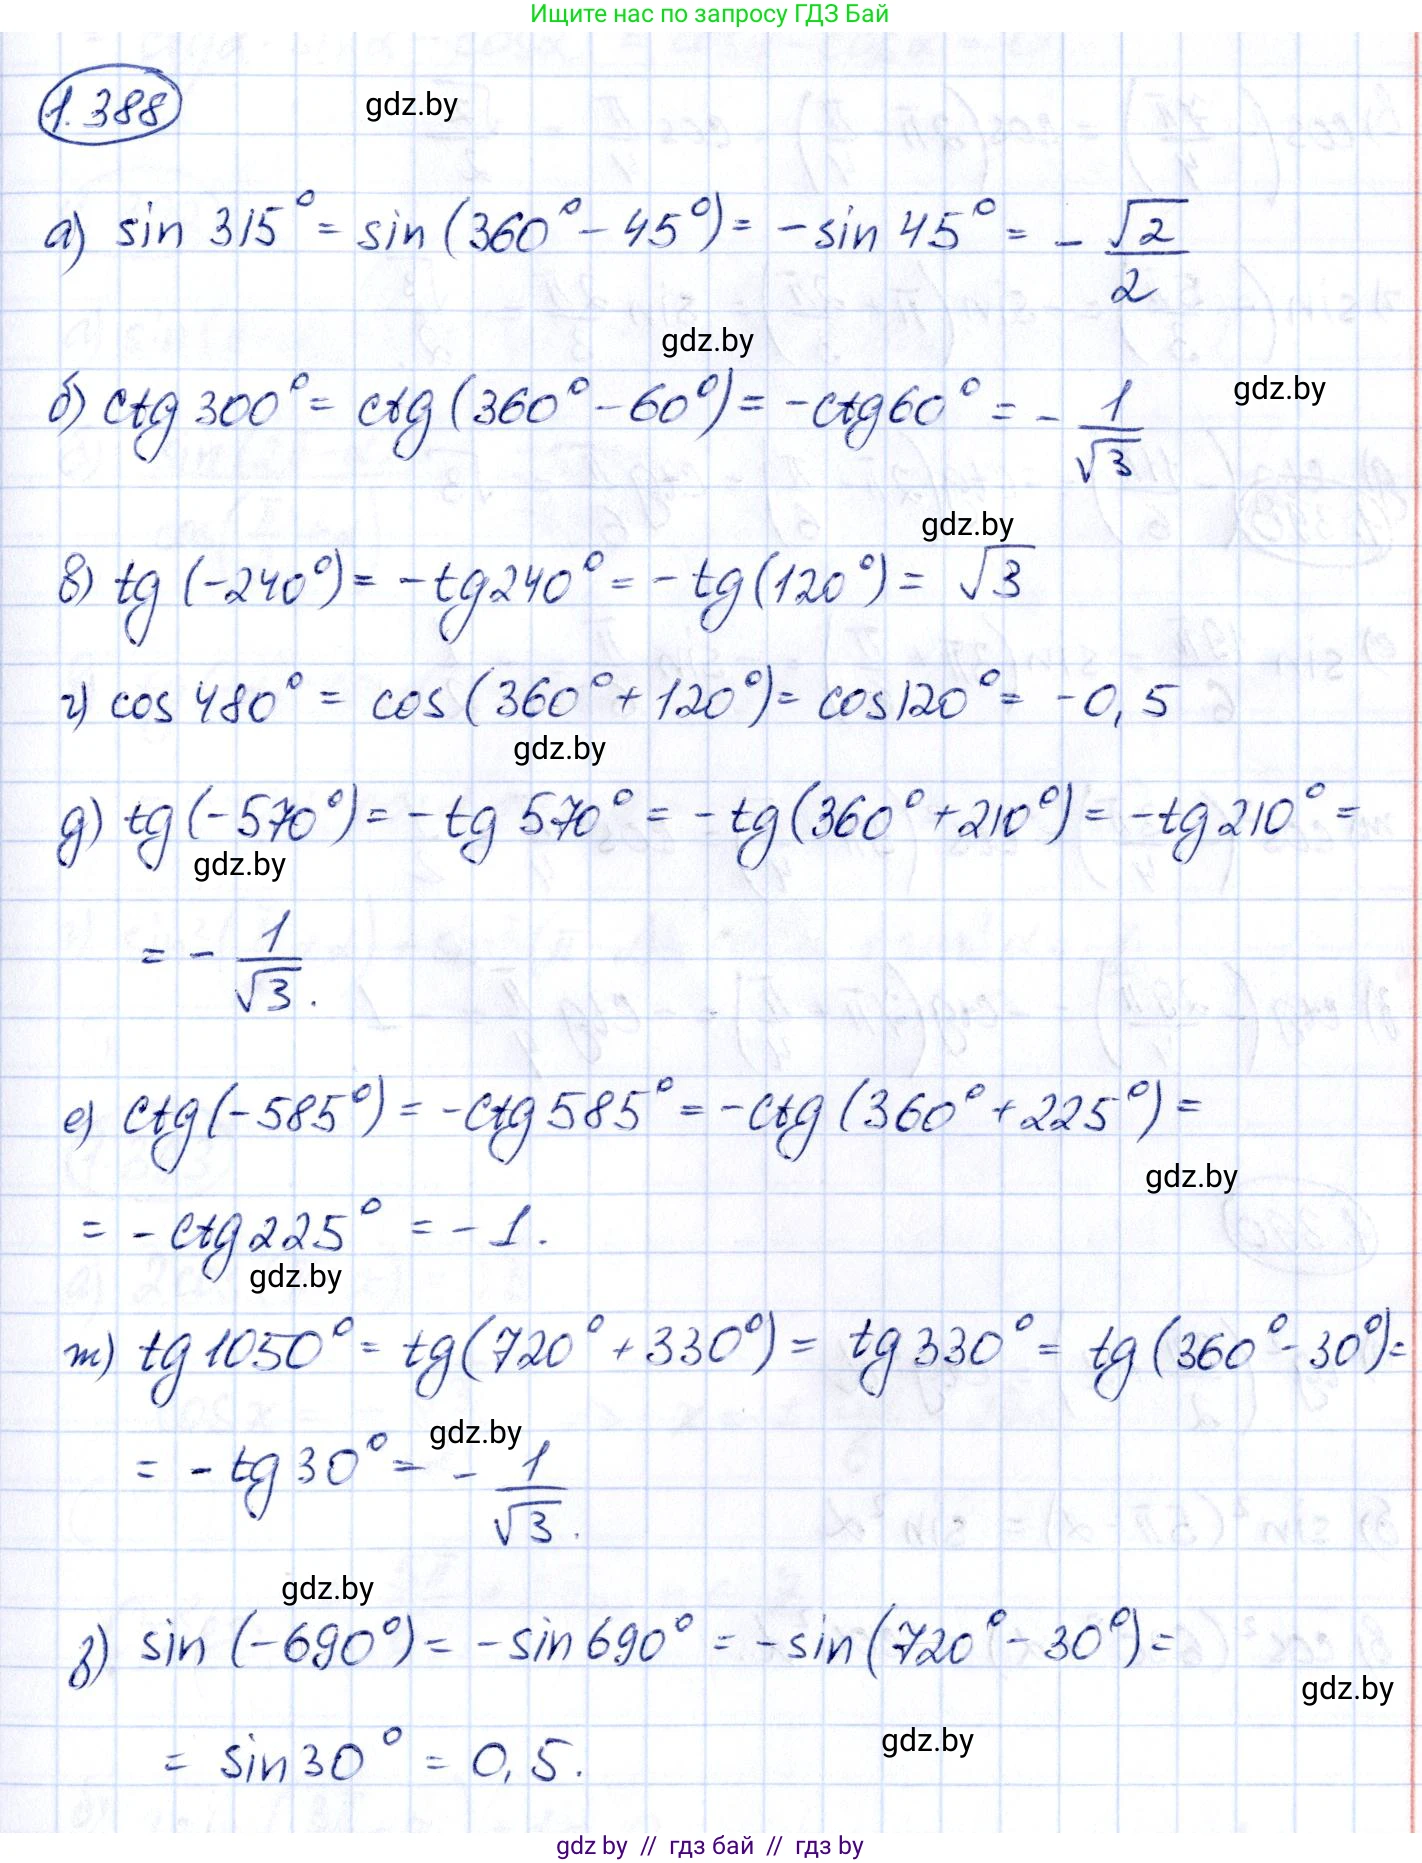 Ищите нас по запросу ГДЗ Бай
1.388
gdz.by
а) sin 315° = sin (360° − 45°) = − sin 45° = − √2/2
gdz.by
б) ctg 300° = ctg (360° − 60°) = − ctg 60° = − 1/√3
gdz.by
gdz.by
в) tg (−240°) = − tg 240° = − tg (120°) = √3
г) cos 480° = cos (360° + 120°) = cos 120° = −0,5
gdz.by
д) tg (−570°) = − tg 570° = − tg (360° + 210°) = − tg 210° =
gdz.by
= − 1/√3.
е) ctg (−585°) = − ctg 585° = − ctg (360° + 225°) =
gdz.by
= − ctg 225° = − 1.
gdz.by
ж) tg 1050° = tg (720° + 330°) = tg 330° = tg (360° − 30°) =
gdz.by
= − tg 30° = − 1/√3.
gdz.by
з) sin (−690°) = − sin 690° = − sin (720° − 30°) =
gdz.by
gdz.by
= sin 30° = 0,5.
gdz.by // гдз бай // гдз by